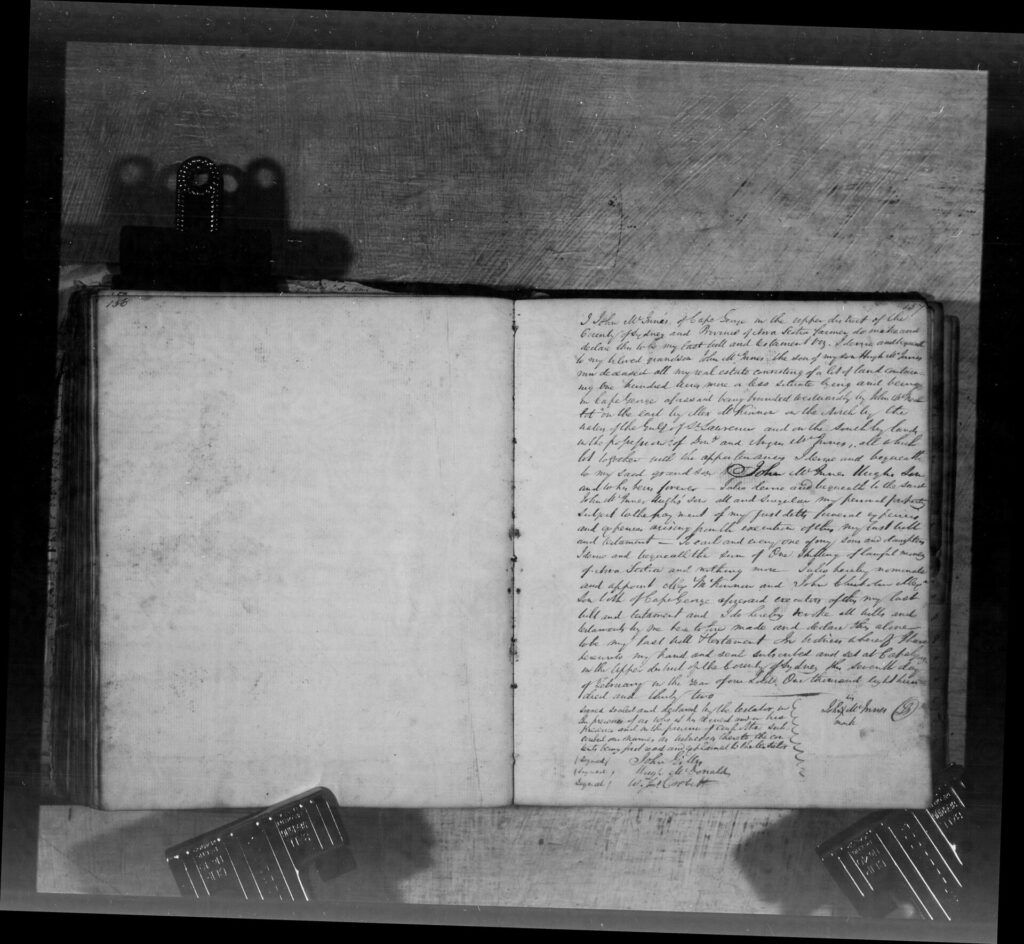 136
137
I John McInnes of Cape George in the upper district of the
County of Sydney and Province of Nova Scotia farmer do make and
declare this to be my last will and testament viz. I devise and bequeath
to my beloved grandson John McInnes the son of my son Hugh McInnes
now deceased all my real estate consisting of a lot of land contain-
ing one hundred acres more or less situate lying and being
in Cape George aforesaid being bounded westwardly by John
lot on the east by Alex McKinnon on the North by the
waters of the Gulf of St Lawrence and on the South by lands
in the possession of and Angus McInnes, all which
lot together with the appurtenances I devise and bequeath
to my said grandson John McInnes Hughs Son
and to his heirs forever — I also devise and bequeath to the said
John McInnes Hugh's son all and singular my personal property
subject to the payment of my just debts funeral expenses
and expenses arising from the execution of this my last will
and testament — To each and every one of my sons and daughters
I devise and bequeath the sum of One Shilling of lawful money
of Nova Scotia and nothing more I also hereby nominate
and appoint McKinnon and John
Son both of Cape George aforesaid executors of this my last
will and testament and I do hereby revoke all wills and
testaments by me heretofore made and declare this alone
to be my last will & testament In witness whereof I have
hereunto my hand and seal subscribed and set at Cape
in the upper district of the County of Sydney this seventh day
of February in the year of our Lord One thousand eight hun
dred and thirty two
signed sealed and declared by the testator in
the presence of us who at his and in his
presence and in the presence of each other sub-
scribed our names as witnesses thereto the con-
tents being first read and explained to the testator
his
John McInnes
mark
(Signed)
(Signed) Hugh McDonald
Signed